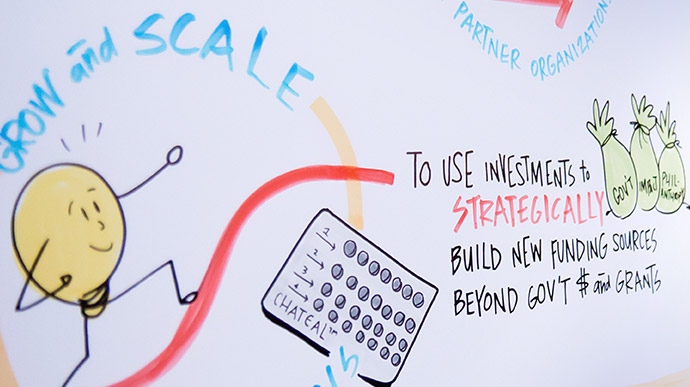 GROW and SCALE
PARTNER ORGANIZATION
TO USE INVESTMENTS to
STRATEGICALLY
BUILD NEW FUNDING SOURCES
BEYOND GOV'T $ and GRANTS
GOV'T
IMPACT
PHIL-
ANTHROPY
1
2
3
4
CHATEAL™